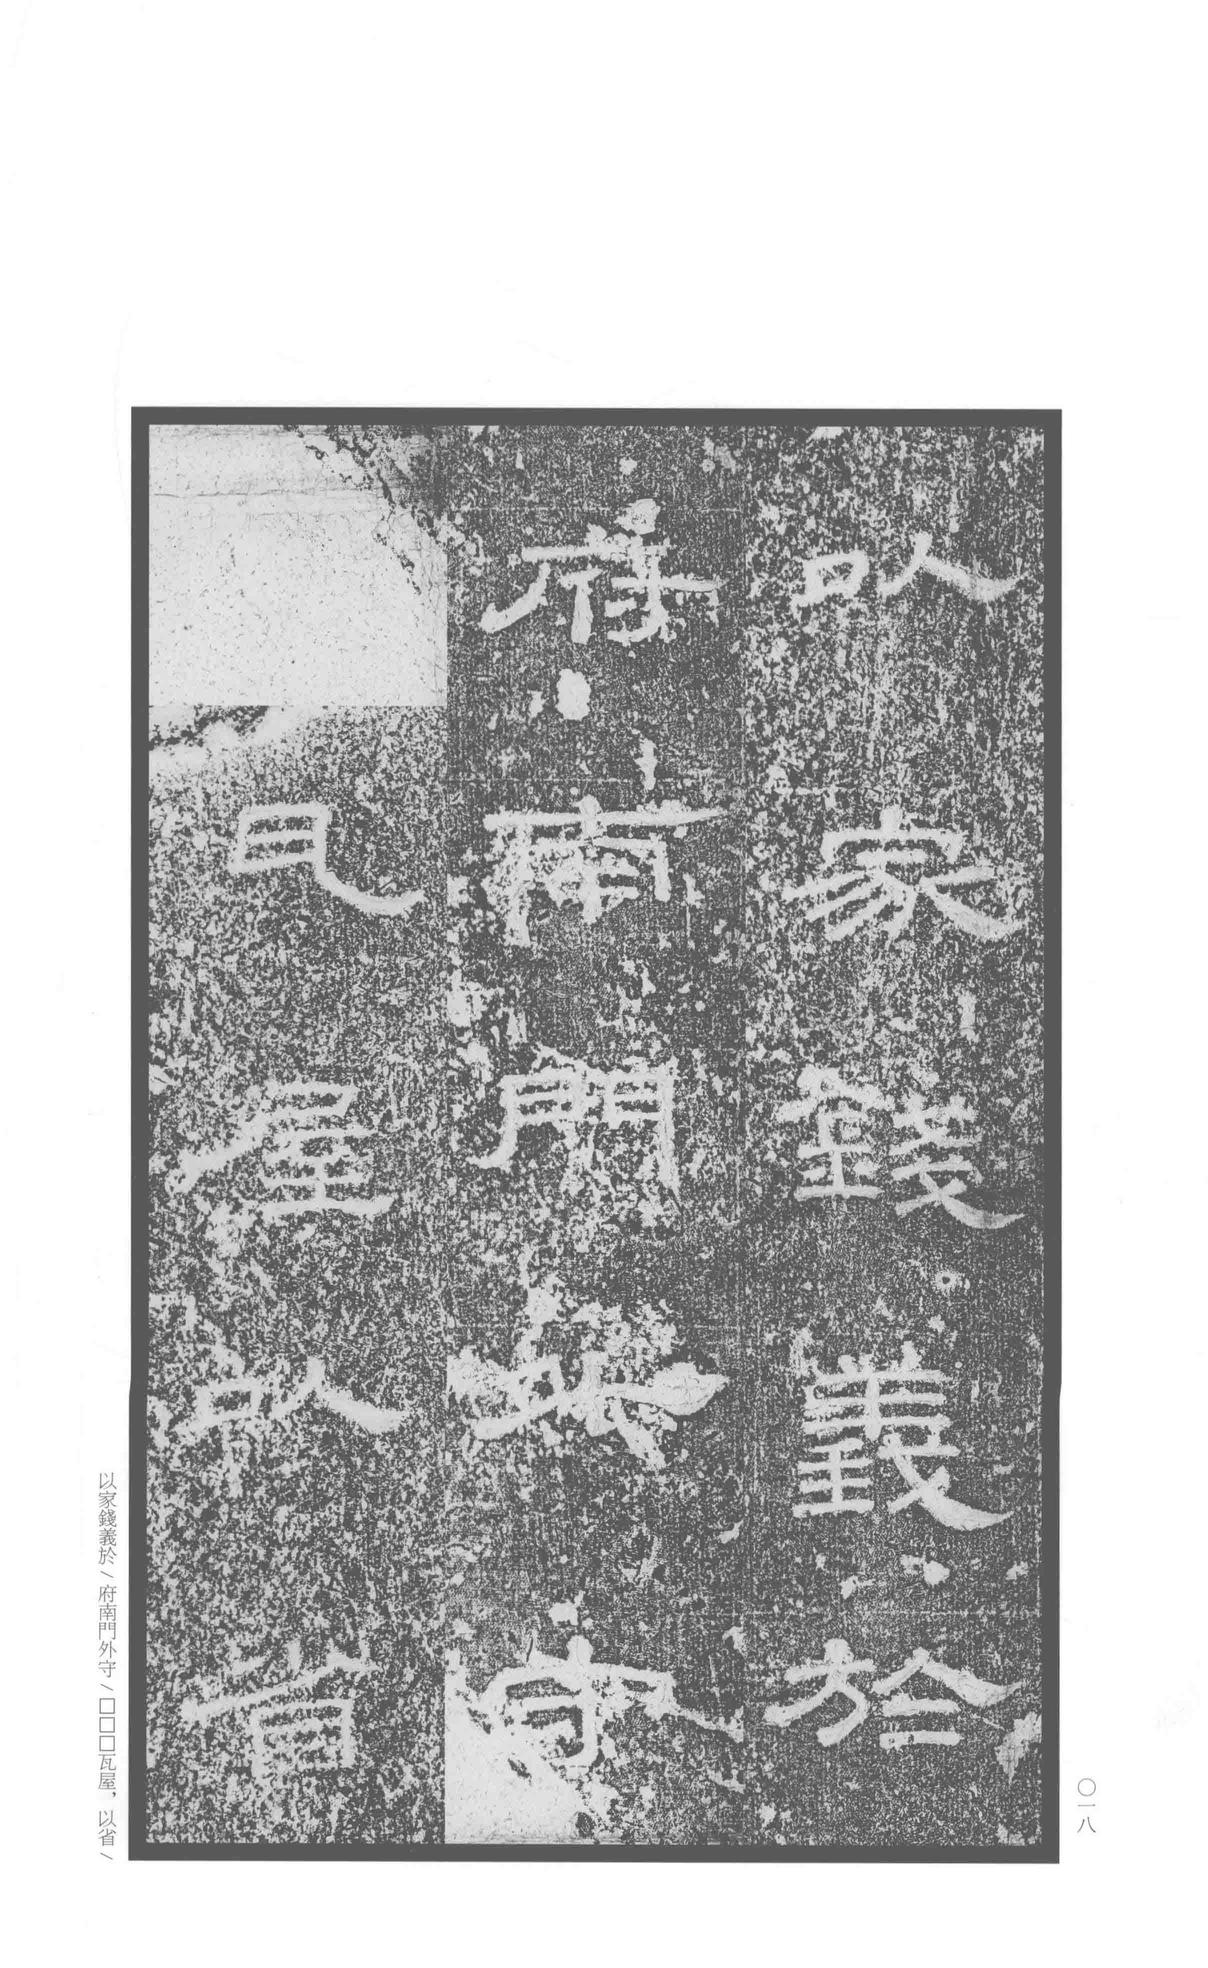 以家錢義於
府南門守
瓦屋以省
以家錢義於\府南門外守\□□□瓦屋，以省\
〇一八